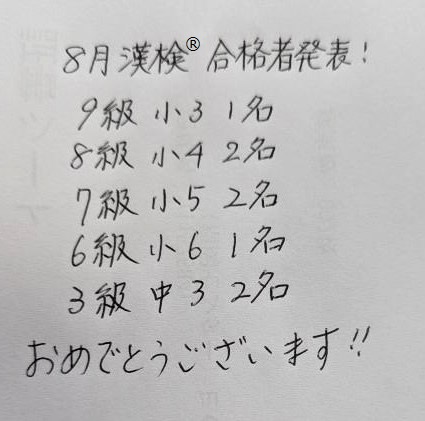 8月漢検® 合格者発表!
9級 小3 1名
8級 小4 2名
7級 小5 2名
6級 小6 1名
3級 中3 2名
おめでとうございます!!